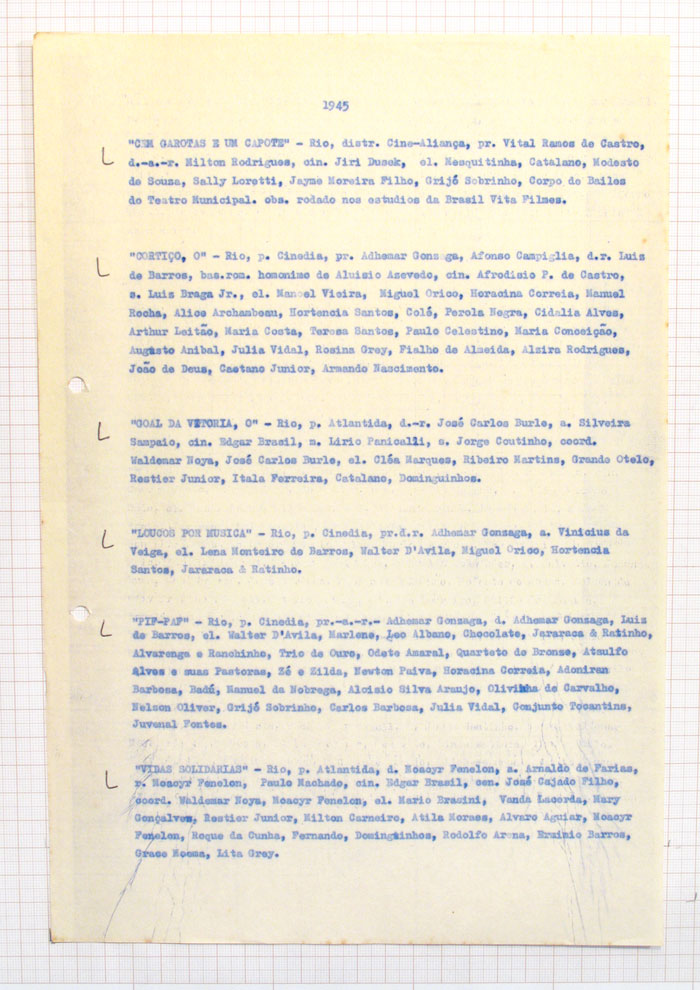 1945
"CEM GAROTAS E UM CAPOTE" - Rio, distr. Cine-Aliança, pr. Vital Ramos de Castro,
d.-a.-r. Milton Rodrigues, cin. Jiri Dusek, el. Mesquitinha, Catalano, Modesto
de Souza, Sally Loretti, Jayme Moreira Filho, Grijó Sobrinho, Corpo de Bailes
do Teatro Municipal. obs. rodado nos estudios da Brasil Vita Filmes.
"CORTIÇO, O" - Rio, p. Cinedia, pr. Adhemar Gonzaga, Afonso Campiglia, d.r. Luis
de Barros, bas.rom. homonimo de Aluisio Azevedo, cin. Afrodisio P. de Castro,
s. Luis Braga Jr., el. Manoel Vieira, Miguel Orico, Horacina Correia, Manuel
Rocha, Alice Archambeau, Hortencia Santos, Colé, Perola Negra, Cidalia Alves,
Arthur Leitão, Maria Costa, Teresa Santos, Paulo Celestino, Maria Conceição,
Augusto Anibal, Julia Vidal, Rosina Grey, Fialho de Almeida, Alzira Rodrigues,
João de Deus, Caetano Junior, Armando Nascimento.
"GOAL DA VITORIA, O" - Rio, p. Atlantida, d.-r. José Carlos Burle, a. Silveira
Sampaio, cin. Edgar Brasil, m. Lirio Panicalli, s. Jorge Coutinho, coord.
Waldemar Noya, José Carlos Burle, el. Cléa Marques, Ribeiro Martins, Grande Otelo,
Restier Junior, Itala Ferreira, Catalano, Dominguinhos.
"LOUCOS POR MUSICA" - Rio, p. Cinedia, pr.d.r. Adhemar Gonzaga, a. Vinicius da
Veiga, el. Lena Monteiro de Barros, Walter D'Avila, Miguel Orico, Hortencia
Santos, Jararaca & Ratinho.
"PIF-PAF" - Rio, p. Cinedia, pr.-a.-r.- Adhemar Gonzaga, d. Adhemar Gonzaga, Luiz
de Barros, el. Walter D'Avila, Marlene, Leo Albano, Chocolate, Jararaca & Ratinho,
Alvarenga e Ranchinho, Trio de Ouro, Odete Amaral, Quarteto de Bronze, Ataulfo
Alves e suas Pastoras, Zé e Zilda, Newton Paiva, Horacina Correia, Adoniran
Barbosa, Badú, Manuel da Nobrega, Aloisio Silva Araujo, Olivinha de Carvalho,
Nelson Oliver, Grijó Sobrinho, Carlos Barbosa, Julia Vidal, Conjunto Tocantins,
Juvenal Fontes.
"VIDAS SOLIDARIAS" - Rio, p. Atlantida, d. Moacyr Fenelon, a. Arnaldo de Farias,
r. Moacyr Fenelon, Paulo Machado, cin. Edgar Brasil, cen. José Cajado Filho,
coord. Waldemar Noya, Moacyr Fenelon, el. Mario Brasini, Vanda Lacerda, Mary
Gonçalves, Restier Junior, Milton Carneiro, Atila Moraes, Alvaro Aguiar, Moacyr
Fenelon, Roque da Cunha, Fernando, Dominguinhos, Rodolfo Arena, Erminio Barros,
Grace Moema, Lita Grey.